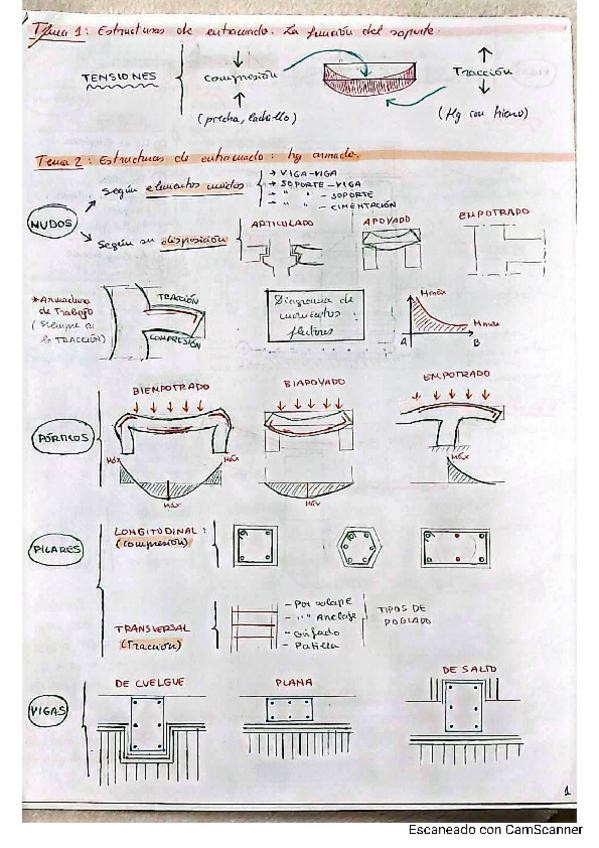 Tema 1: Estructuras de entramado. La función del soporte.
TENSIONES
Compresión
(piedra, ladrillo)
Tracción
(Hg con hierro)
Tema 2: Estructuras de entramado: hg armado.
NUDOS
Según elementos unidos
→ VIGA-VIGA
→ SOPORTE-VIGA
→ " " - SOPORTE
→ " " - CIMENTACIÓN
Según su disposición
ARTICULADO
APOYADO
EMPOTRADO
*Armadura
de Trabajo
(Siempre a
la TRACCIÓN)
TRACCIÓN
COMPRESIÓN
Diagrama de
momentos
flectores
Mmáx
Mmax
A
B
PÓRTICOS
BIEMPOTRADO
BIAPOYADO
EMPOTRADO
Máx
Máx
Máx
Máx
Máx
PILARES
LONGITUDINAL:
(Compresión)
TRANSVERSAL
(Tracción)
- Por solape
- " " Anclaje
- " Grifado
- Patilla
TIPOS DE
DOBLADO
VIGAS
DE CUELGUE
PLANA
DE SALTO
1
Escaneado con CamScanner